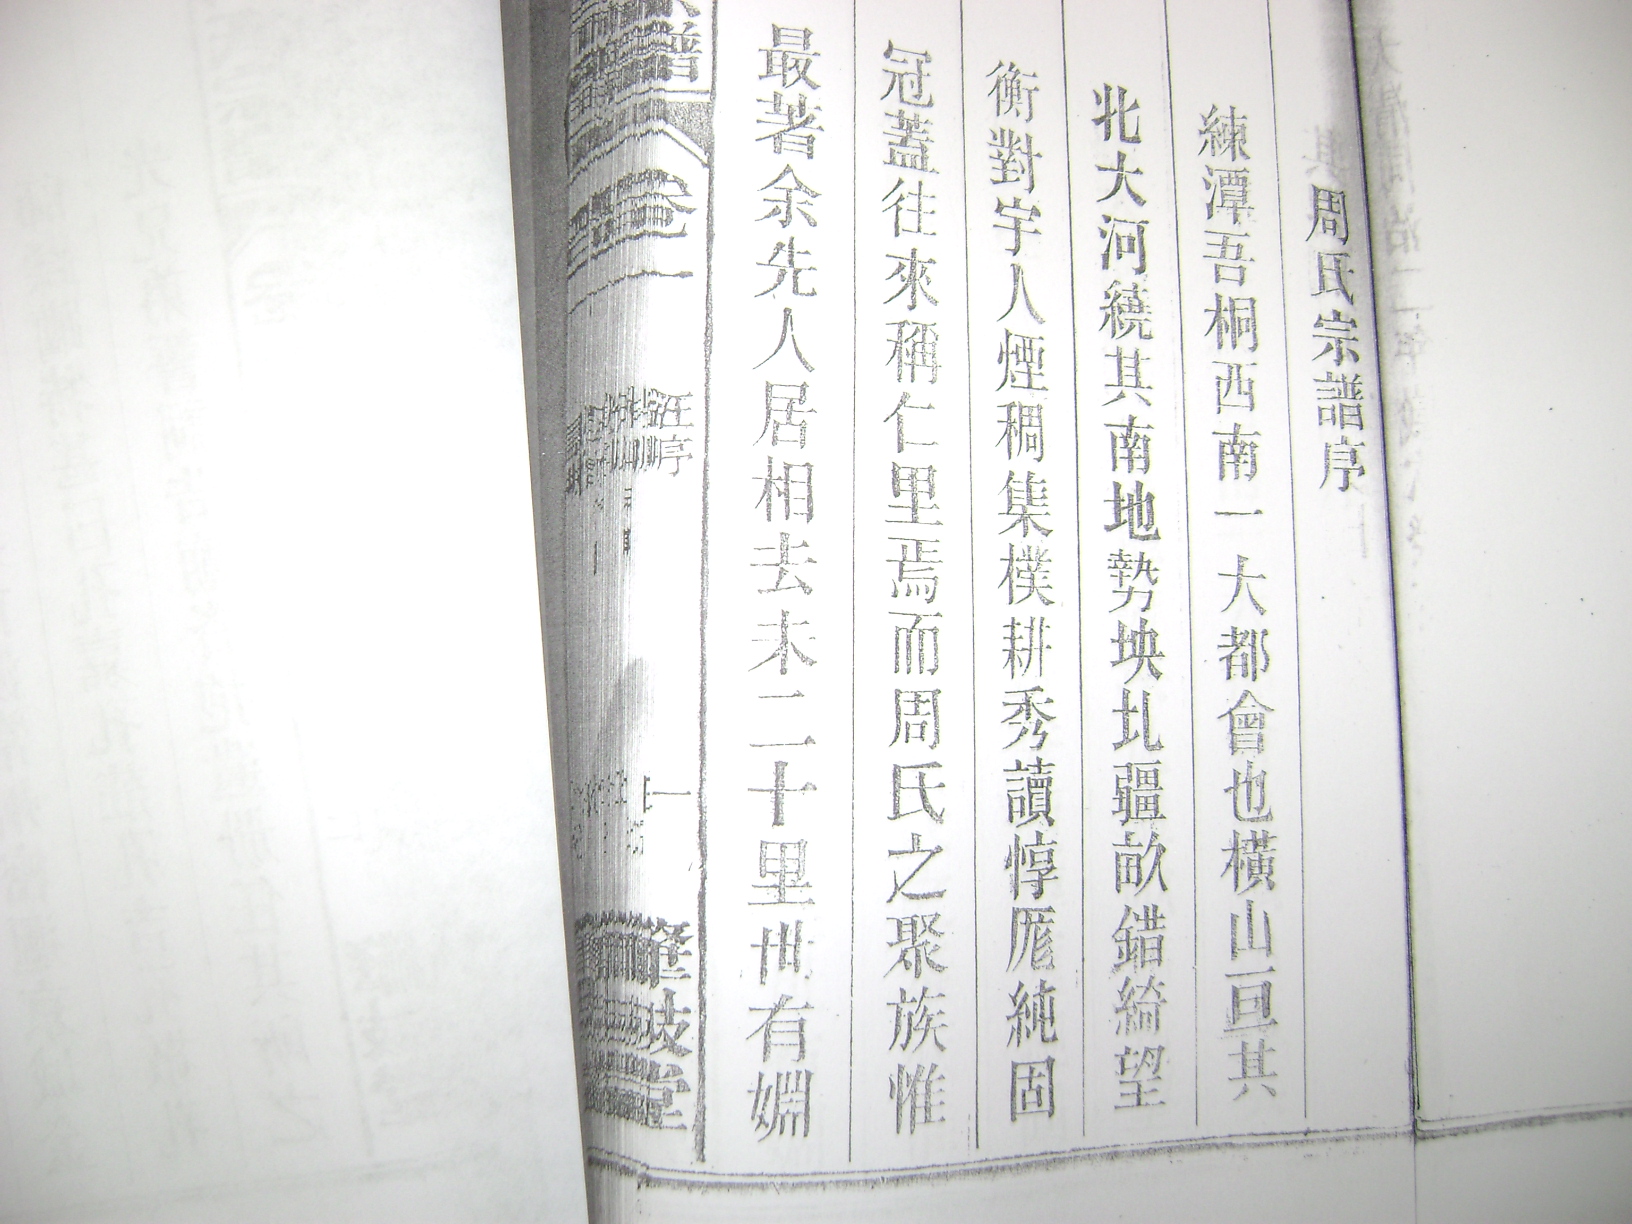 周氏宗譜序
練潭吾桐西南一大都會也橫山亘其
北大河繞其南地勢坱圠疆畝錯綺望
衡對宇人煙稠集樸耕秀讀惇厖純固
冠蓋往來稱仁里焉而周氏之聚族惟
最著余先人居相去未二十里世有婣
譜 卷一 序 一 堂